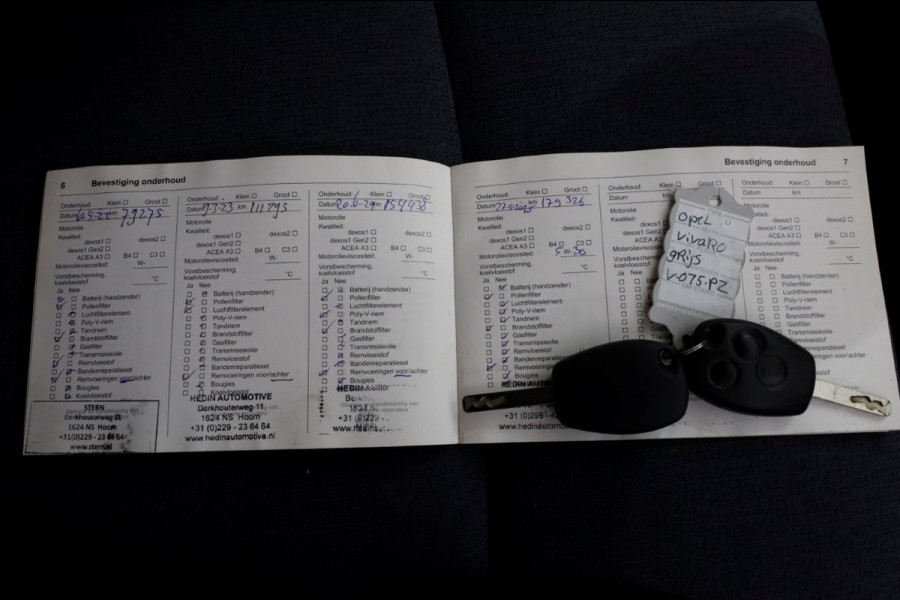 6 Bevestiging onderhoud
Onderhoud: Klein Groot
Datum km 79275
Motorolie
Kwaliteit:
dexos1 dexos2
dexos1 Gen2
ACEA A3 B4 C3
Motorolieviscositeit: W-
Vorstbescherming,
koelvloeistof °C
Ja Nee
Batterij (handzender)
Pollenfilter
Luchtfilterelement
Poly-V-riem
Tandriem
Brandstoffilter
Gasfilter
Transmissieolie
Remvloeistof
Bandenreparatieset
Remvoeringen voor/achter
Bougies
Koelvloeistof
STERN
Berkhouterweg 11
1624 NS Hoorn
+31 (0)229 - 23 64 64
Onderhoud: Klein Groot
Datum 9-3-23 km 111293
Motorolie
Kwaliteit:
dexos1 dexos2
dexos1 Gen2
ACEA A3 B4 C3
Motorolieviscositeit: W-
Vorstbescherming,
koelvloeistof °C
Ja Nee
Batterij (handzender)
Pollenfilter
Luchtfilterelement
Poly-V-riem
Tandriem
Brandstoffilter
Gasfilter
Transmissieolie
Remvloeistof
Bandenreparatieset
Remvoeringen voor/achter
Bougies
Koelvloeistof
HEDIN AUTOMOTIVE
Berkhouterweg 11
1624 NS Hoorn
+31(0)229 - 23 64 64
www.hedinautomotive.nl
Onderhoud: Klein Groot
Datum km
Motorolie
Kwaliteit:
dexos1 dexos2
dexos1 Gen2
ACEA A3 B4 C3
Motorolieviscositeit: W-
Vorstbescherming,
koelvloeistof °C
Ja Nee
Batterij (handzender)
Pollenfilter
Luchtfilterelement
Poly-V-riem
Tandriem
Brandstoffilter
Gasfilter
Transmissieolie
Remvloeistof
Bandenreparatieset
Remvoeringen voor/achter
Bougies
HEDIN
Bevestiging onderhoud 7
Onderhoud: Klein Groot
Datum km 179326
Motorolie
Kwaliteit:
dexos1 dexos2
dexos1 Gen2
ACEA A3 B4 C3
Motorolieviscositeit: 5 W-30
Vorstbescherming,
koelvloeistof °C
Ja Nee
Batterij (handzender)
Pollenfilter
Luchtfilterelement
Poly-V-riem
Tandriem
Brandstoffilter
Gasfilter
Transmissieolie
Remvloeistof
Bandenreparatieset
HEDIN AUTO
Onderhoud: Klein Groot
Datum
Motorolie
Kwaliteit:
OPEL
VIVARO
GRIJS
V-075-PZ
Onderhoud: Klein Groot
Datum km
dexos2
B4 C3
W-
°C
Batterij (handzender)
Pollenfilter
Luchtfilterelement
Poly-V-riem
Tandriem
Brandstoffilter
Gasfilter
Transmissieolie
Remvloeistof
Bandenreparatieset